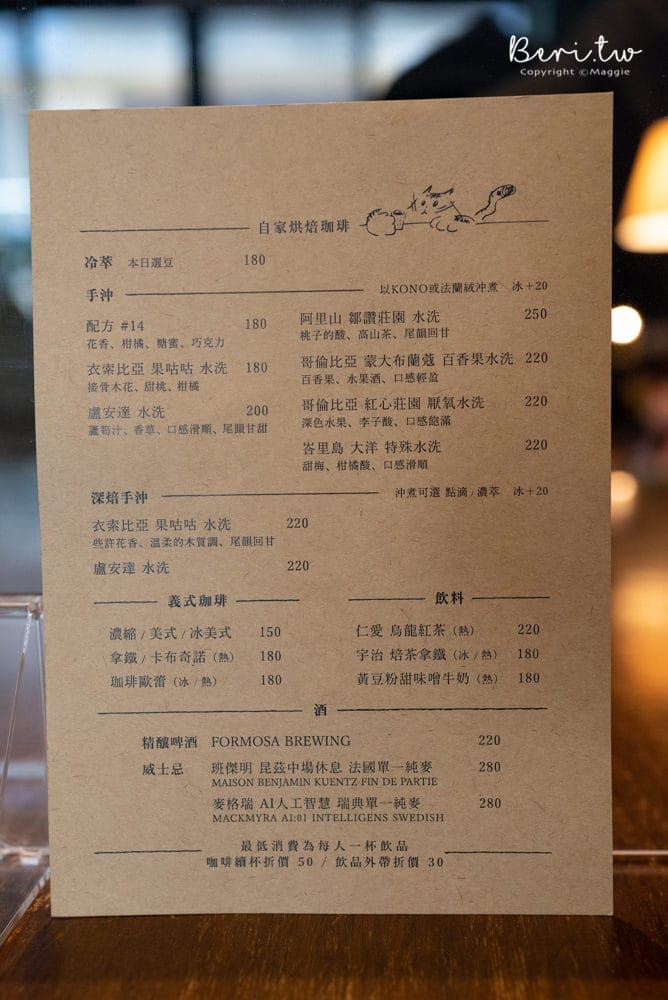 Beri.tw
Copyright ©Maggie
自家烘焙珈琲
冷萃 本日選豆 180
手沖 以KONO或法蘭絨沖煮 冰+20
配方 #14 180
花香、柑橘、糖蜜、巧克力
衣索比亞 果咕咕 水洗 180
接骨木花、甜桃、柑橘
盧安達 水洗 200
蘆筍汁、香草、口感滑順、尾韻甘甜
阿里山 鄒讚莊園 水洗 250
桃子的酸、高山茶、尾韻回甘
哥倫比亞 蒙大布蘭蔻 百香果水洗 220
百香果、水果酒、口感輕盈
哥倫比亞 紅心莊園 厭氧水洗 220
深色水果、李子酸、口感飽滿
峇里島 大洋 特殊水洗 220
甜梅、柑橘酸、口感滑順
深焙手沖 沖煮可選 點滴/濃萃 冰+20
衣索比亞 果咕咕 水洗 220
些許花香、溫柔的木質調、尾韻回甘
盧安達 水洗 220
義式珈琲
濃縮/美式/冰美式 150
拿鐵/卡布奇諾(熱) 180
珈琲歐蕾(冰/熱) 180
飲料
仁愛 烏龍紅茶(熱) 220
宇治 焙茶拿鐵(冰/熱) 180
黃豆粉甜味噌牛奶(熱) 180
酒
精釀啤酒 FORMOSA BREWING 220
威士忌 班傑明 昆茲中場休息 法國單一純麥 280
MAISON BENJAMIN KUENTZ FIN DE PARTIE
麥格瑞 AI人工智慧 瑞典單一純麥 280
MACKMYRA AI:01 INTELLIGENS SWEDISH
最低消費為每人一杯飲品
咖啡續杯折價 50 / 飲品外帶折價 30